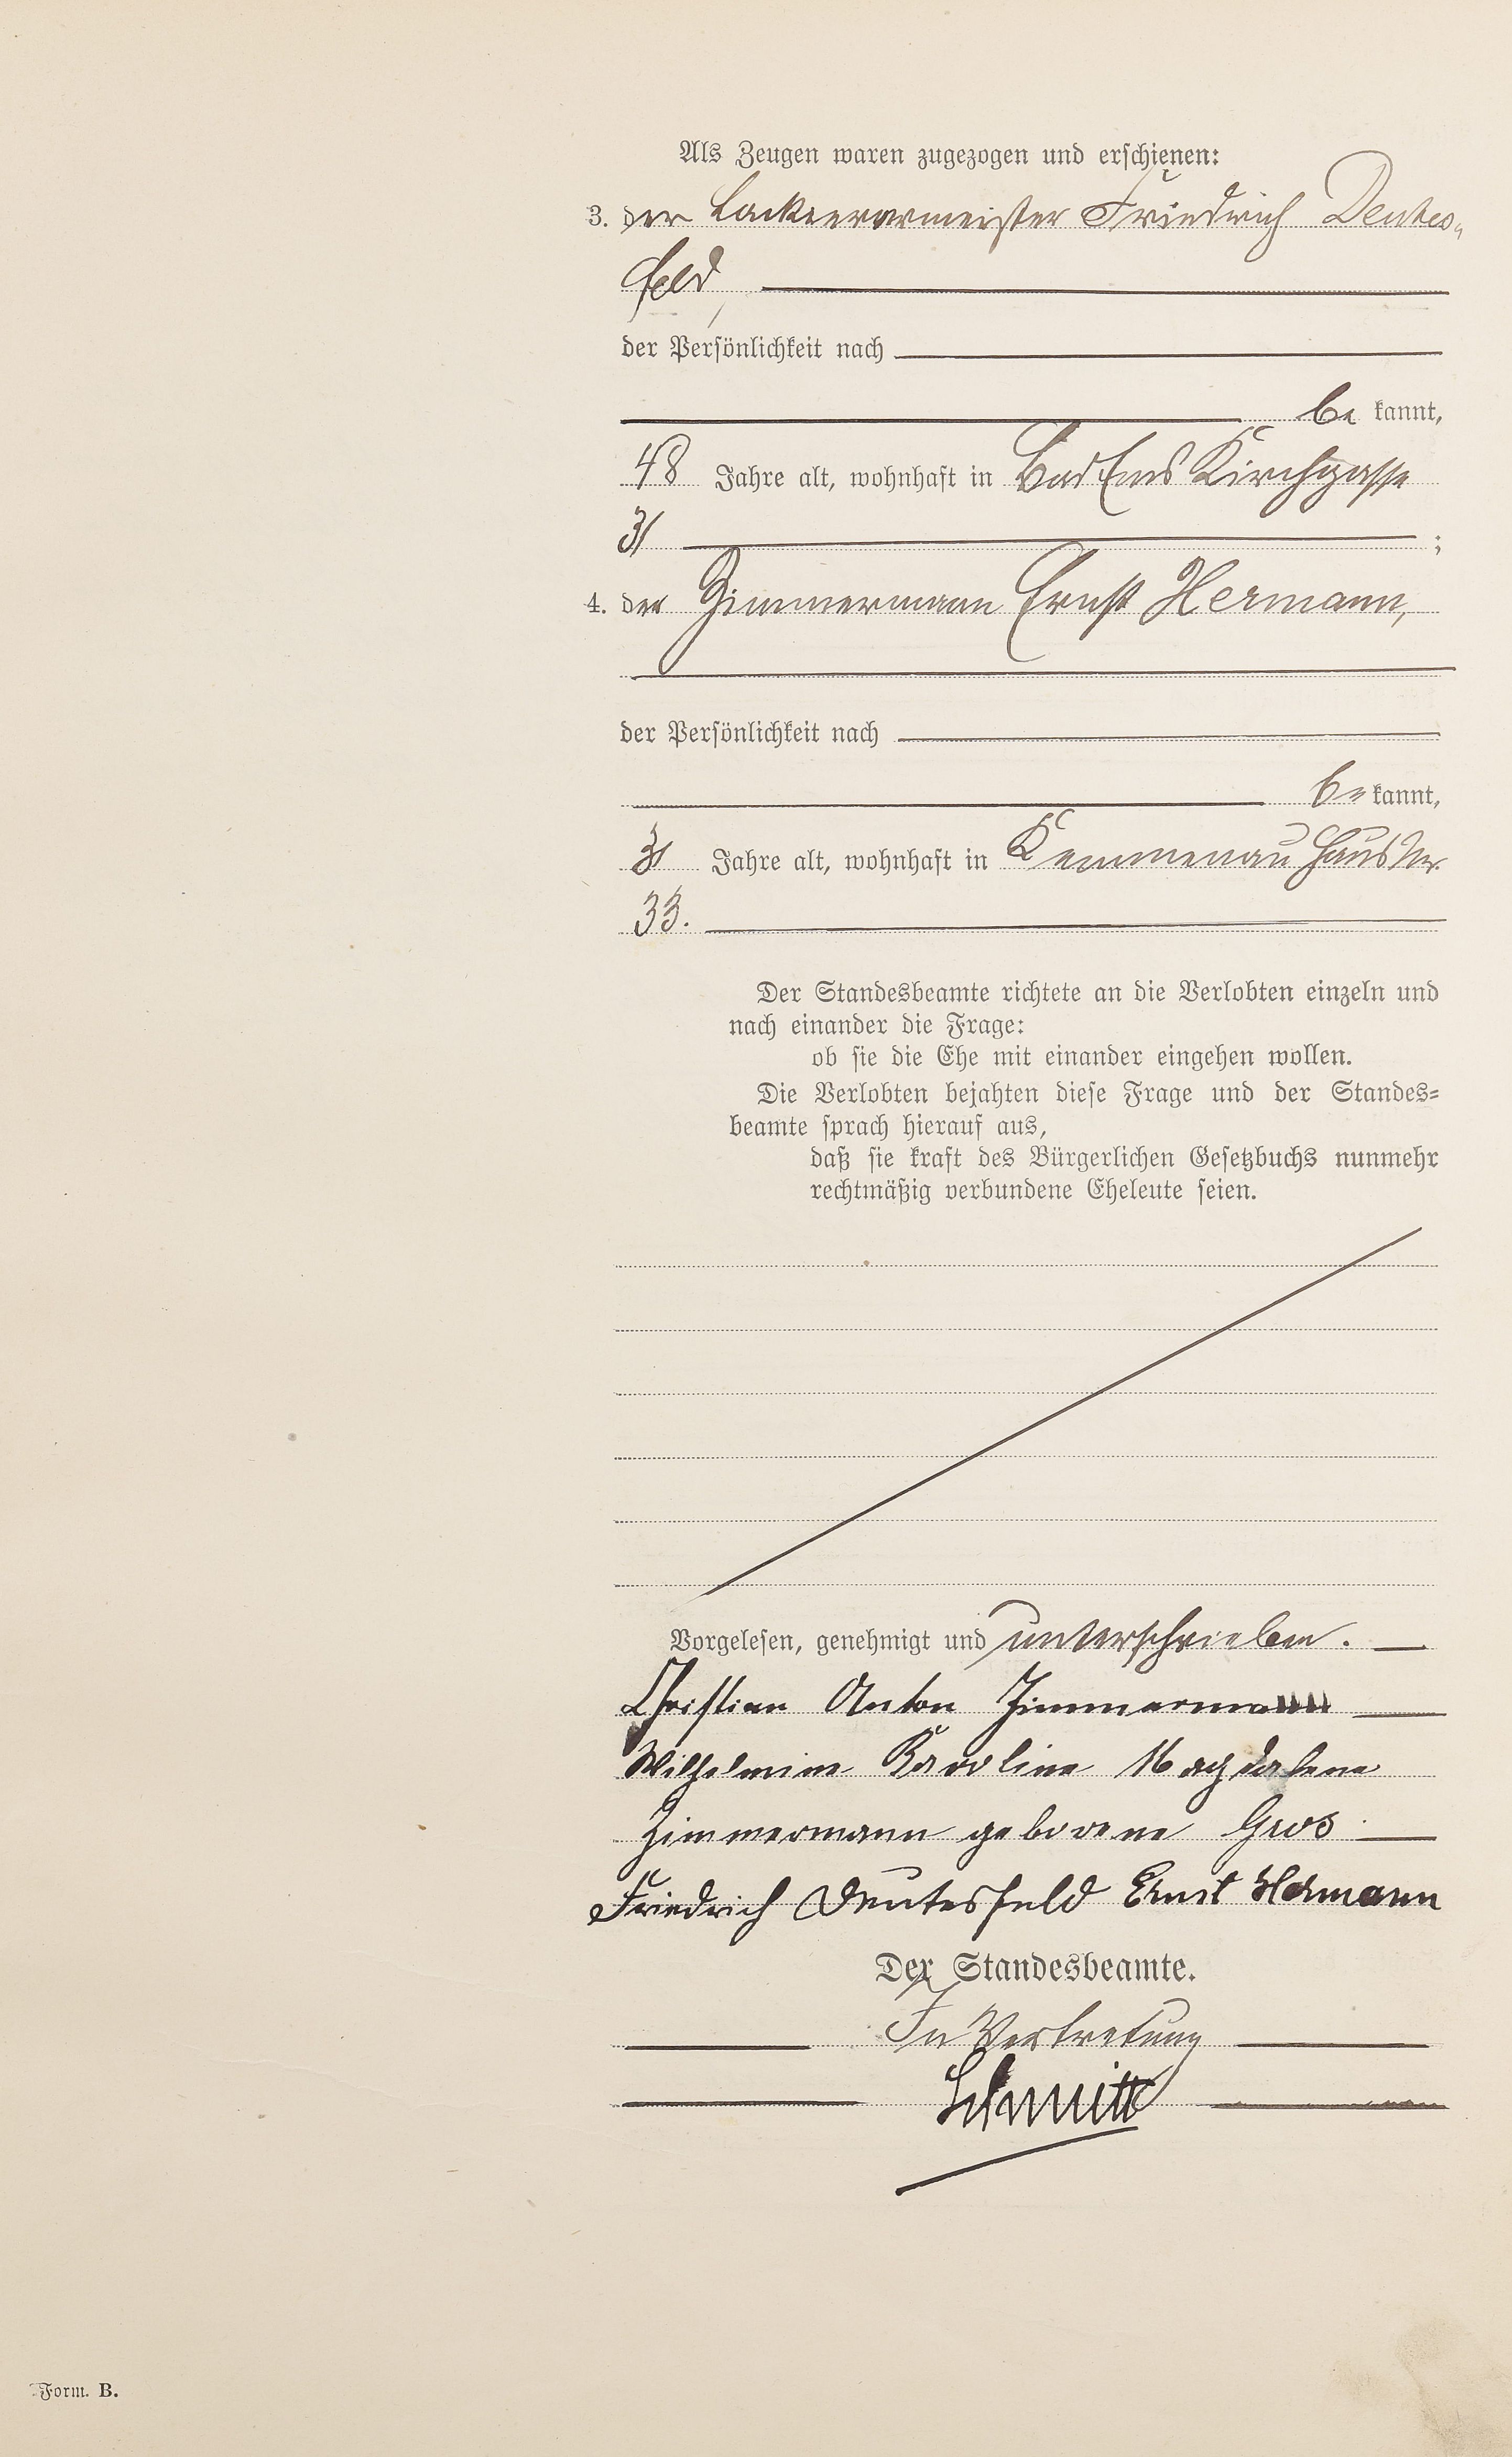 Als Zeugen waren zugezogen und erschienen:
3. der Lackierermeister Friedrich Deutes-
feld,
der Persönlichkeit nach
be kannt,
48 Jahre alt, wohnhaft in Bad Ems Kirchgasse
31 ;
4. der Zimmermann Ernst Hermann,
der Persönlichkeit nach
be kannt,
31 Jahre alt, wohnhaft in Kemmenau Haus Nr.
33.
Der Standesbeamte richtete an die Verlobten einzeln und
nach einander die Frage:
ob sie die Ehe mit einander eingehen wollen.
Die Verlobten bejahten diese Frage und der Standes=
beamte sprach hierauf aus,
daß sie kraft des Bürgerlichen Gesetzbuchs nunmehr
rechtmäßig verbundene Eheleute seien.
Vorgelesen, genehmigt und unterschrieben.
Christian Anton Zimmermann
Wilhelmine Karoline Magdalene
Zimmermann geborene Gros
Friedrich Deutesfeld Ernst Hermann
Der Standesbeamte.
In Vertretung
Schmitt
Form. B.